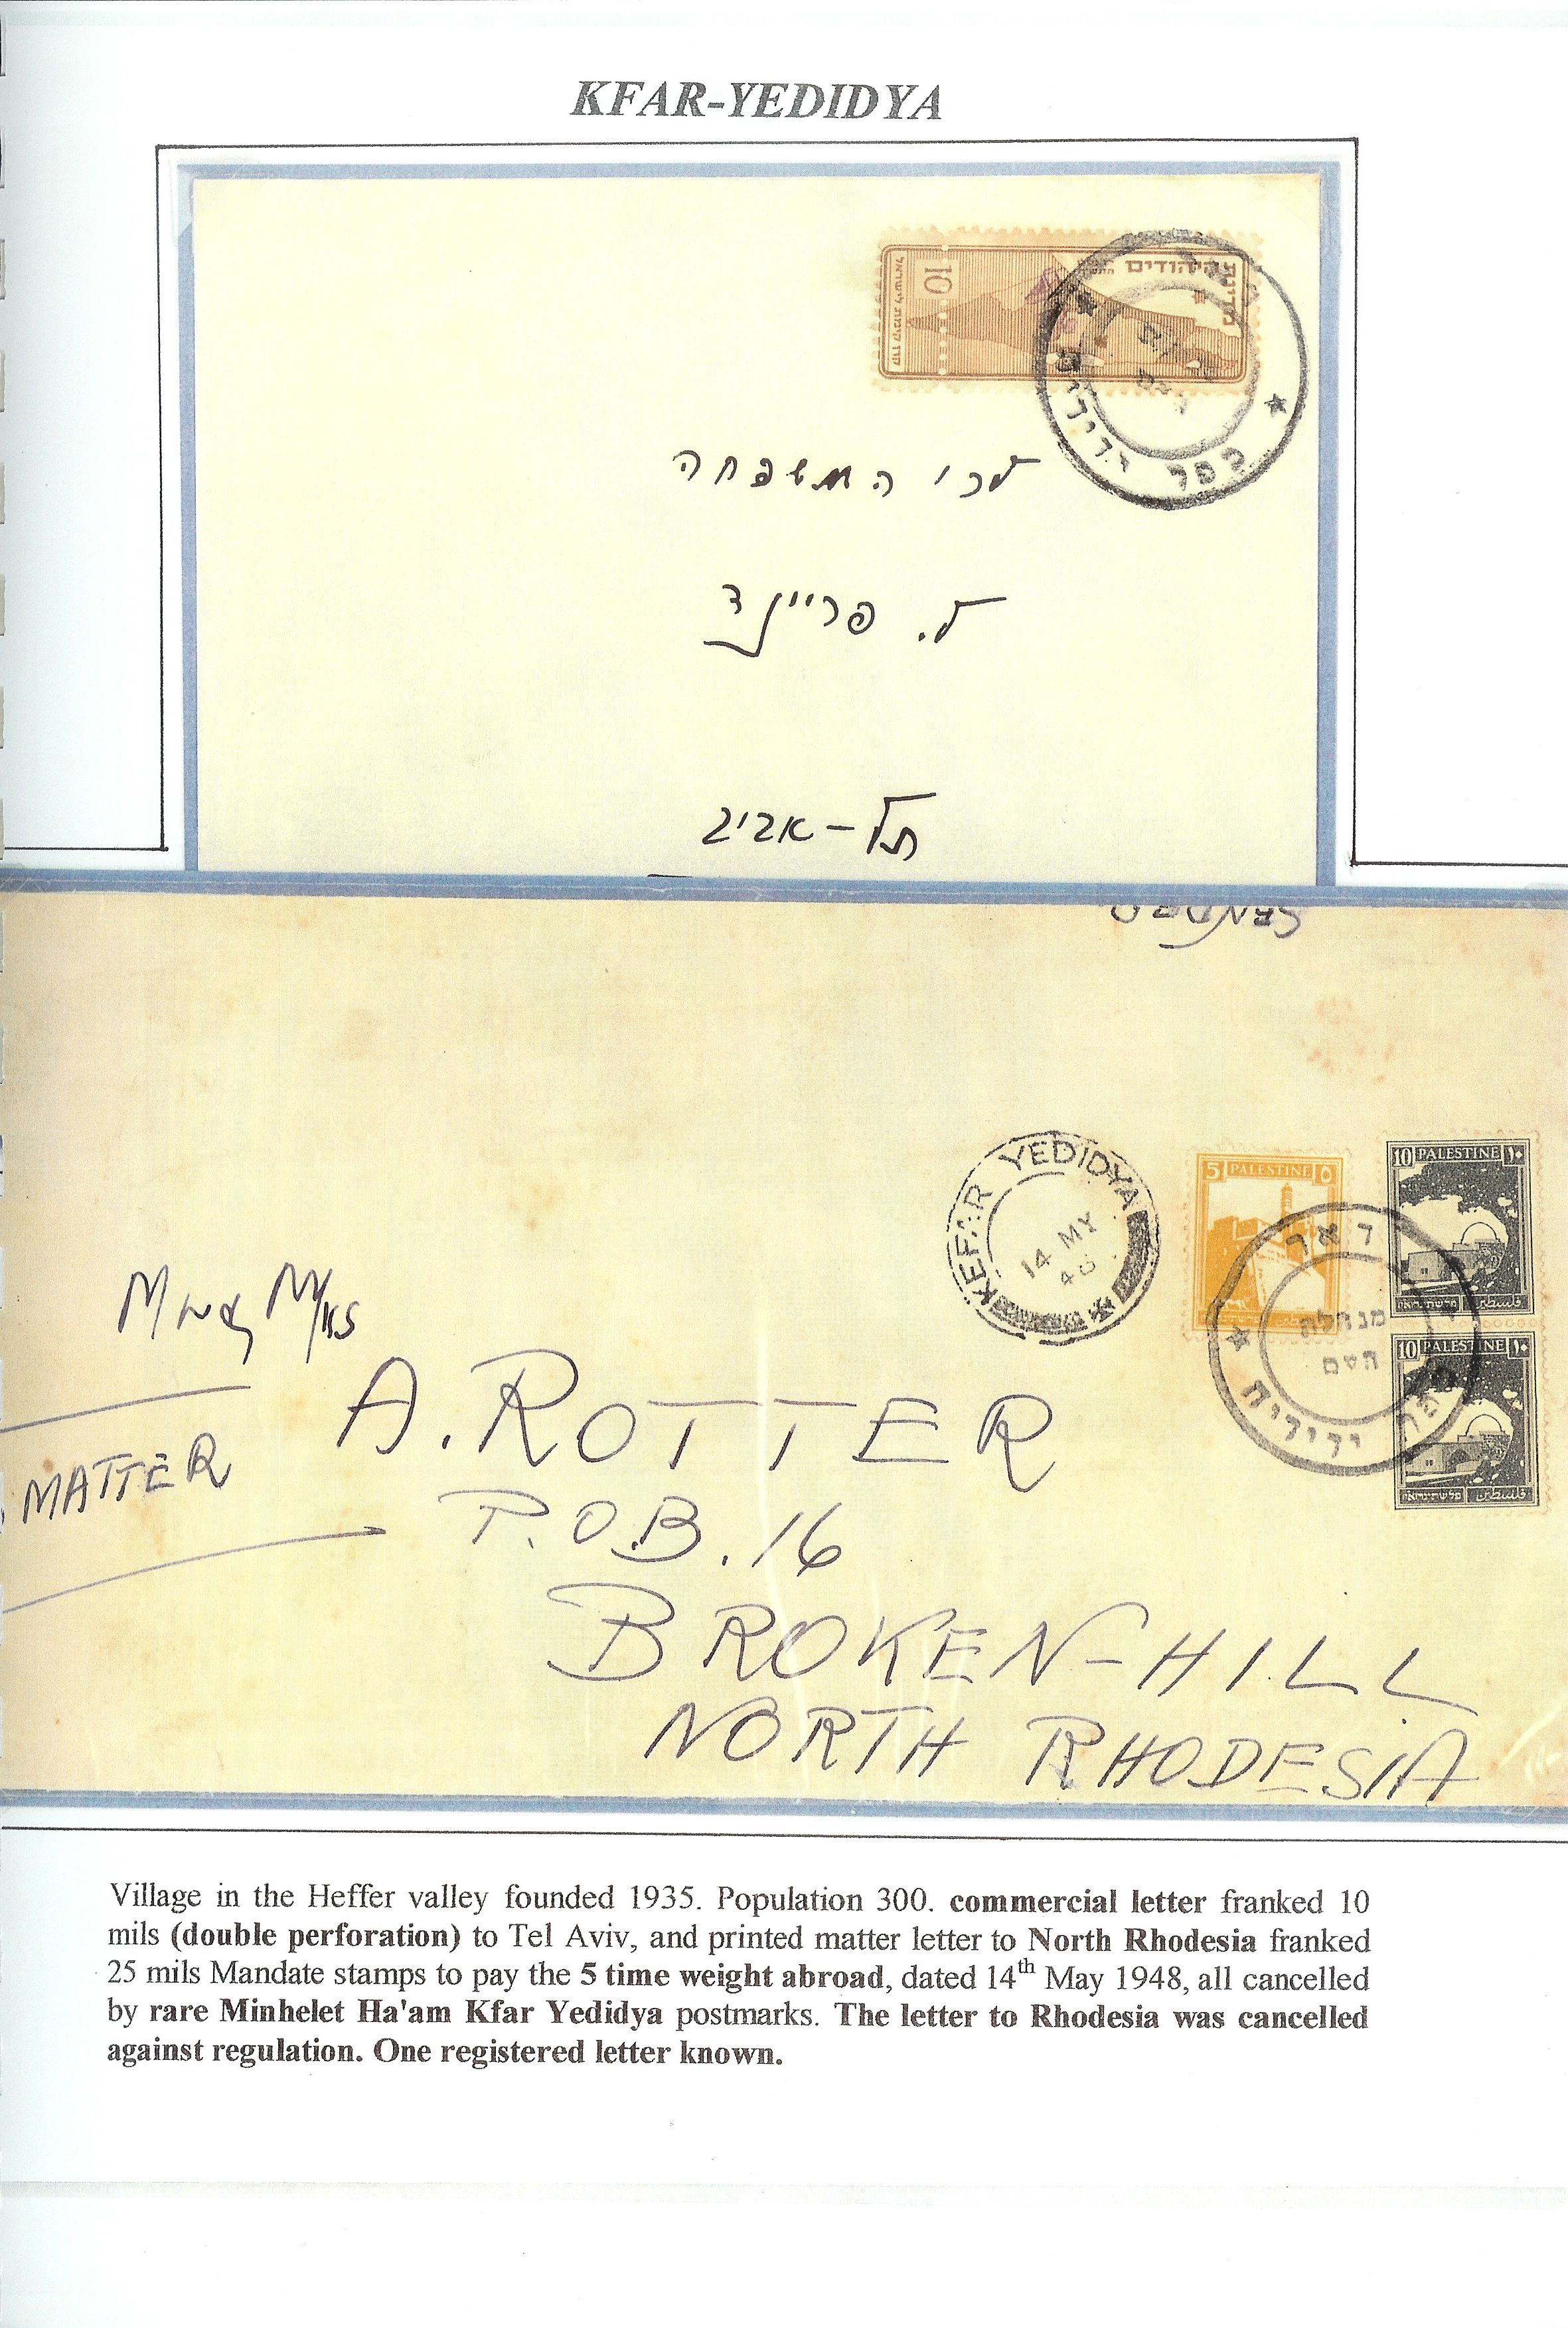 KFAR-YEDIDYA
מדינת היהודים
10
קרן קימת לישראל
כפר ידידיה
לכי המשפחה
ל. פריינד
תל-אביב
KEFAR YEDIDYA
14 MY
48
5 PALESTINE ٥
10 PALESTINE ١٠
10 PALESTINE ١٠
דאר
מנהלת
העם
כפר ידידיה
MATTER
A. ROTTER
P.O.B. 16
BROKEN-HILL
NORTH RHODESIA
Village in the Heffer valley founded 1935. Population 300. commercial letter franked 10
mils (double perforation) to Tel Aviv, and printed matter letter to North Rhodesia franked
25 mils Mandate stamps to pay the 5 time weight abroad, dated 14th May 1948, all cancelled
by rare Minhelet Ha'am Kfar Yedidya postmarks. The letter to Rhodesia was cancelled
against regulation. One registered letter known.